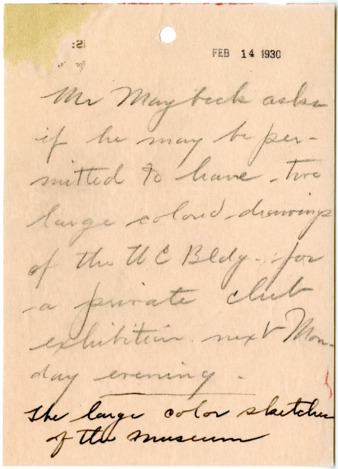 FEB 14 1930
Mr Maybeck asks
if he may be per-
mitted to have two
large colored drawings
of the U C Bldg. for
a private club
exhibition next Mon-
day evening.
The large color sketches
of the museum